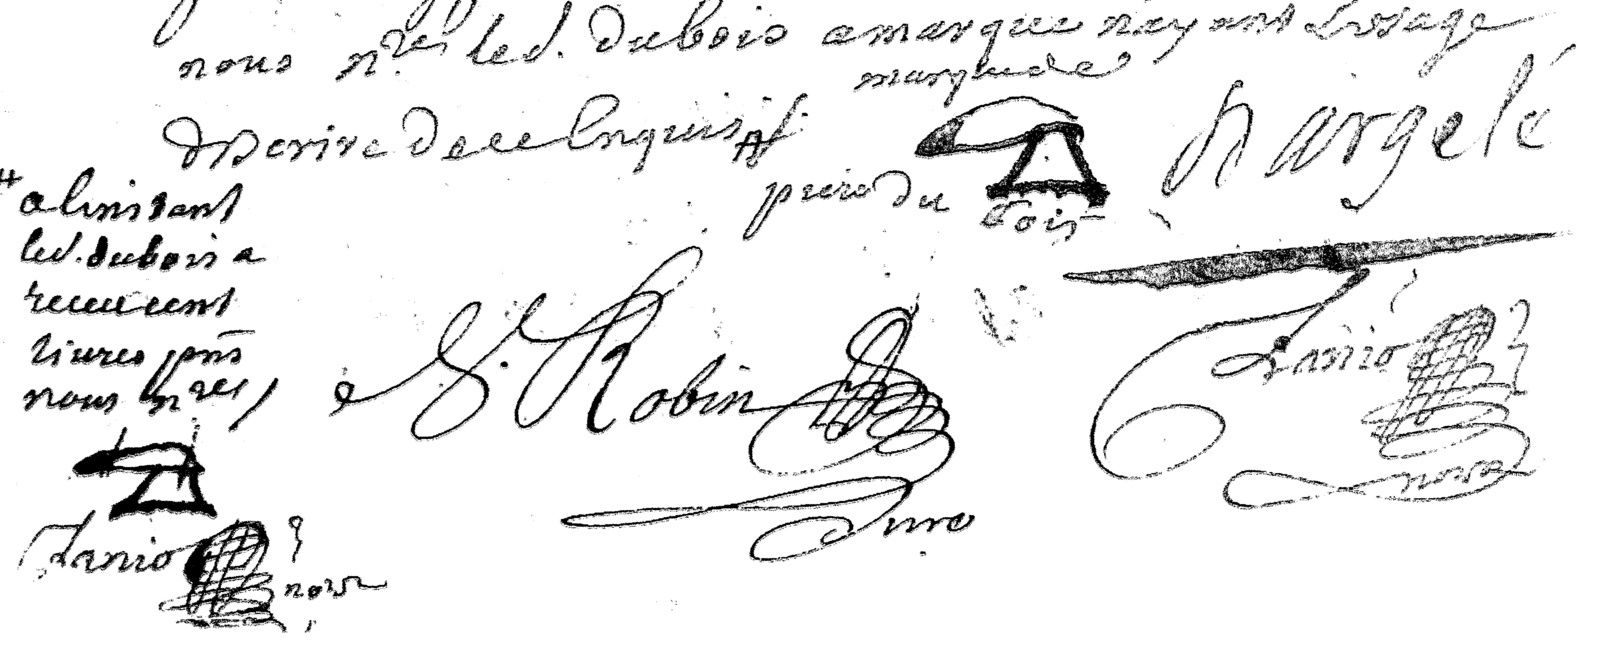 nous nres led. dubois a marque nayant Lusage
descrire de ce Enquis #
marque de
pierre du bois
N argelé
#
a linstant
led. dubois a
receu cent
livres pns
nous nres
G. Robin
Jure
Lanio
nore
Lanio
nore